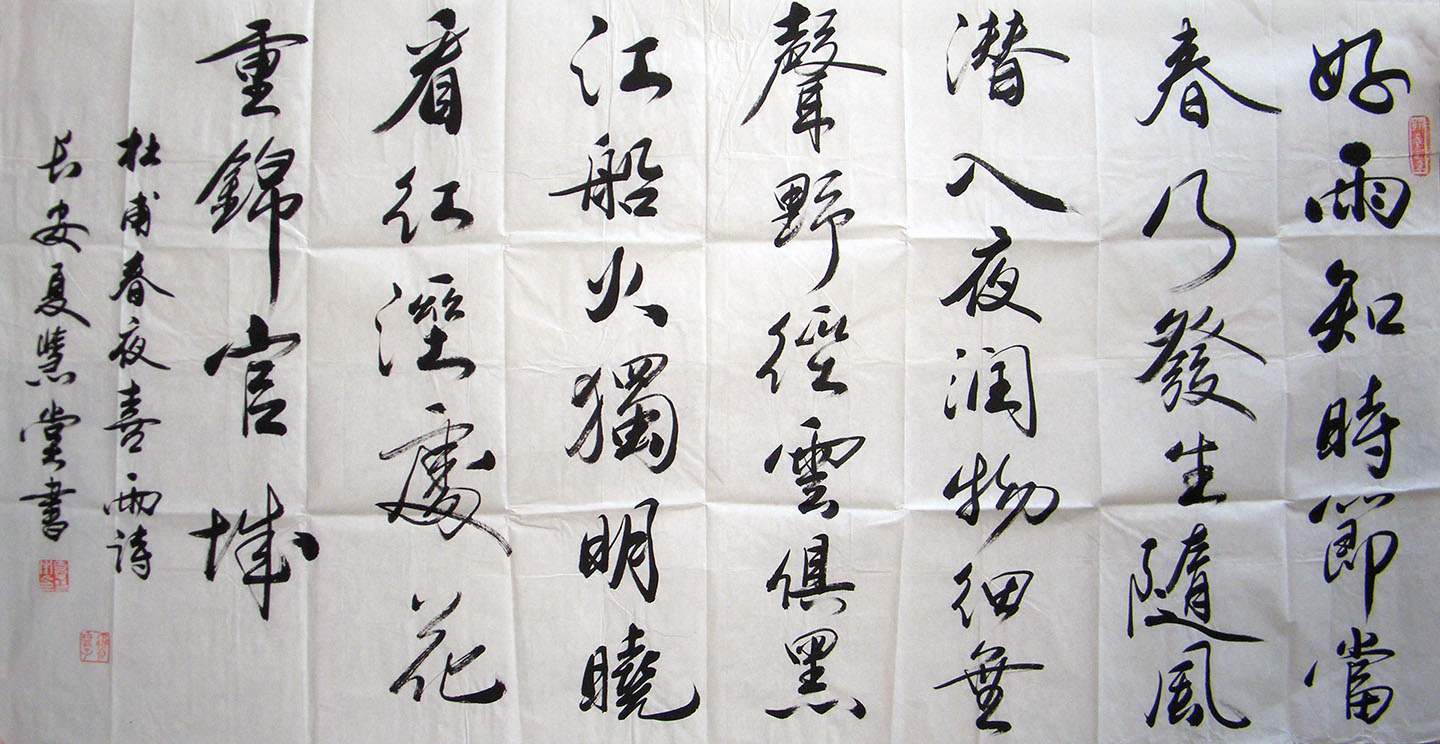 好雨知時節當
春乃發生隨風
潜入夜润物细無
聲野徑雲俱黑
江船火獨明曉
看红溼處花
重錦官城
杜甫春夜喜雨詩
长安夏慧堂書